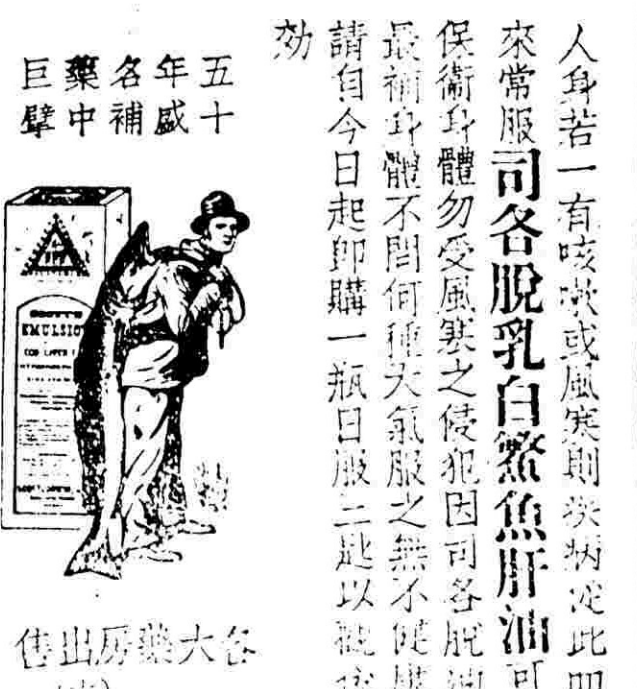 人身若一有咳嗽或風寒則疾病從此即
來常服司各脫乳白鰵魚肝油可
保衞身體勿受風寒之侵犯因司各脫油
最補身體不問何種天氣服之無不健康
請自今日起即購一瓶日服三匙以觀
効
五十
年盛
名補
藥中
巨擘
SCOTT'S
EMULSIO
COD LIVER
各大藥房出售